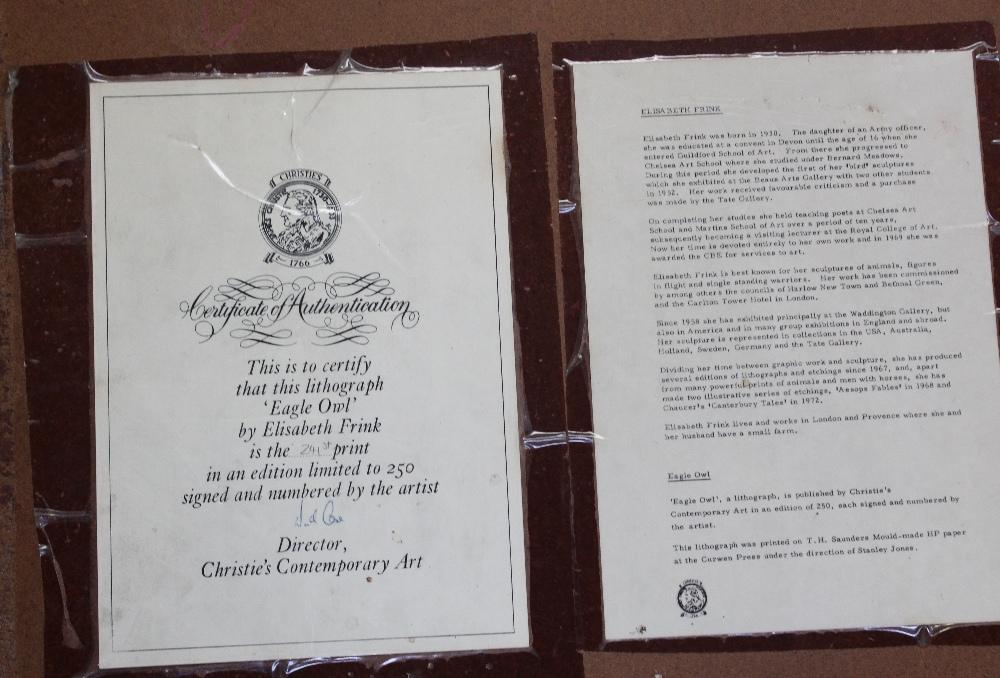 CHRISTIES
1766
Certificate of Authentication
This is to certify
that this lithograph
'Eagle Owl'
by Elisabeth Frink
is the 241st print
in an edition limited to 250
signed and numbered by the artist
Director,
Christie's Contemporary Art
ELISABETH FRINK
Elisabeth Frink was born in 1930. The daughter of an Army officer,
she was educated at a convent in Devon until the age of 16 when she
entered Guildford School of Art. From there she progressed to
Chelsea Art School where she studied under Bernard Meadows.
During this period she developed the first of her 'bird' sculptures
which she exhibited at the Beaux Arts Gallery with two other students
in 1952. Her work received favourable criticism and a purchase
was made by the Tate Gallery.
On completing her studies she held teaching posts at Chelsea Art
School and Martins School of Art over a period of ten years,
subsequently becoming a visiting lecturer at the Royal College of Art.
Now her time is devoted entirely to her own work and in 1969 she was
awarded the CBE for services to art.
Elisabeth Frink is best known for her sculptures of animals, figures
in flight and single standing warriors. Her work has been commissioned
by among others the councils of Harlow New Town and Bethnal Green,
and the Carlton Tower Hotel in London.
Since 1958 she has exhibited principally at the Waddington Gallery, but
also in America and in many group exhibitions in England and abroad.
Her sculpture is represented in collections in the USA, Australia,
Holland, Sweden, Germany and the Tate Gallery.
Dividing her time between graphic work and sculpture, she has produced
several editions of lithographs and etchings since 1967, and, apart
from many powerful prints of animals and men with horses, she has
made two illustrative series of etchings, 'Aesops Fables' in 1968 and
Chaucer's 'Canterbury Tales' in 1972.
Elisabeth Frink lives and works in London and Provence where she and
her husband have a small farm.
Eagle Owl
'Eagle Owl', a lithograph, is published by Christie's
Contemporary Art in an edition of 250, each signed and numbered by
the artist.
This lithograph was printed on T.H. Saunders Mould-made HP paper
at the Curwen Press under the direction of Stanley Jones.